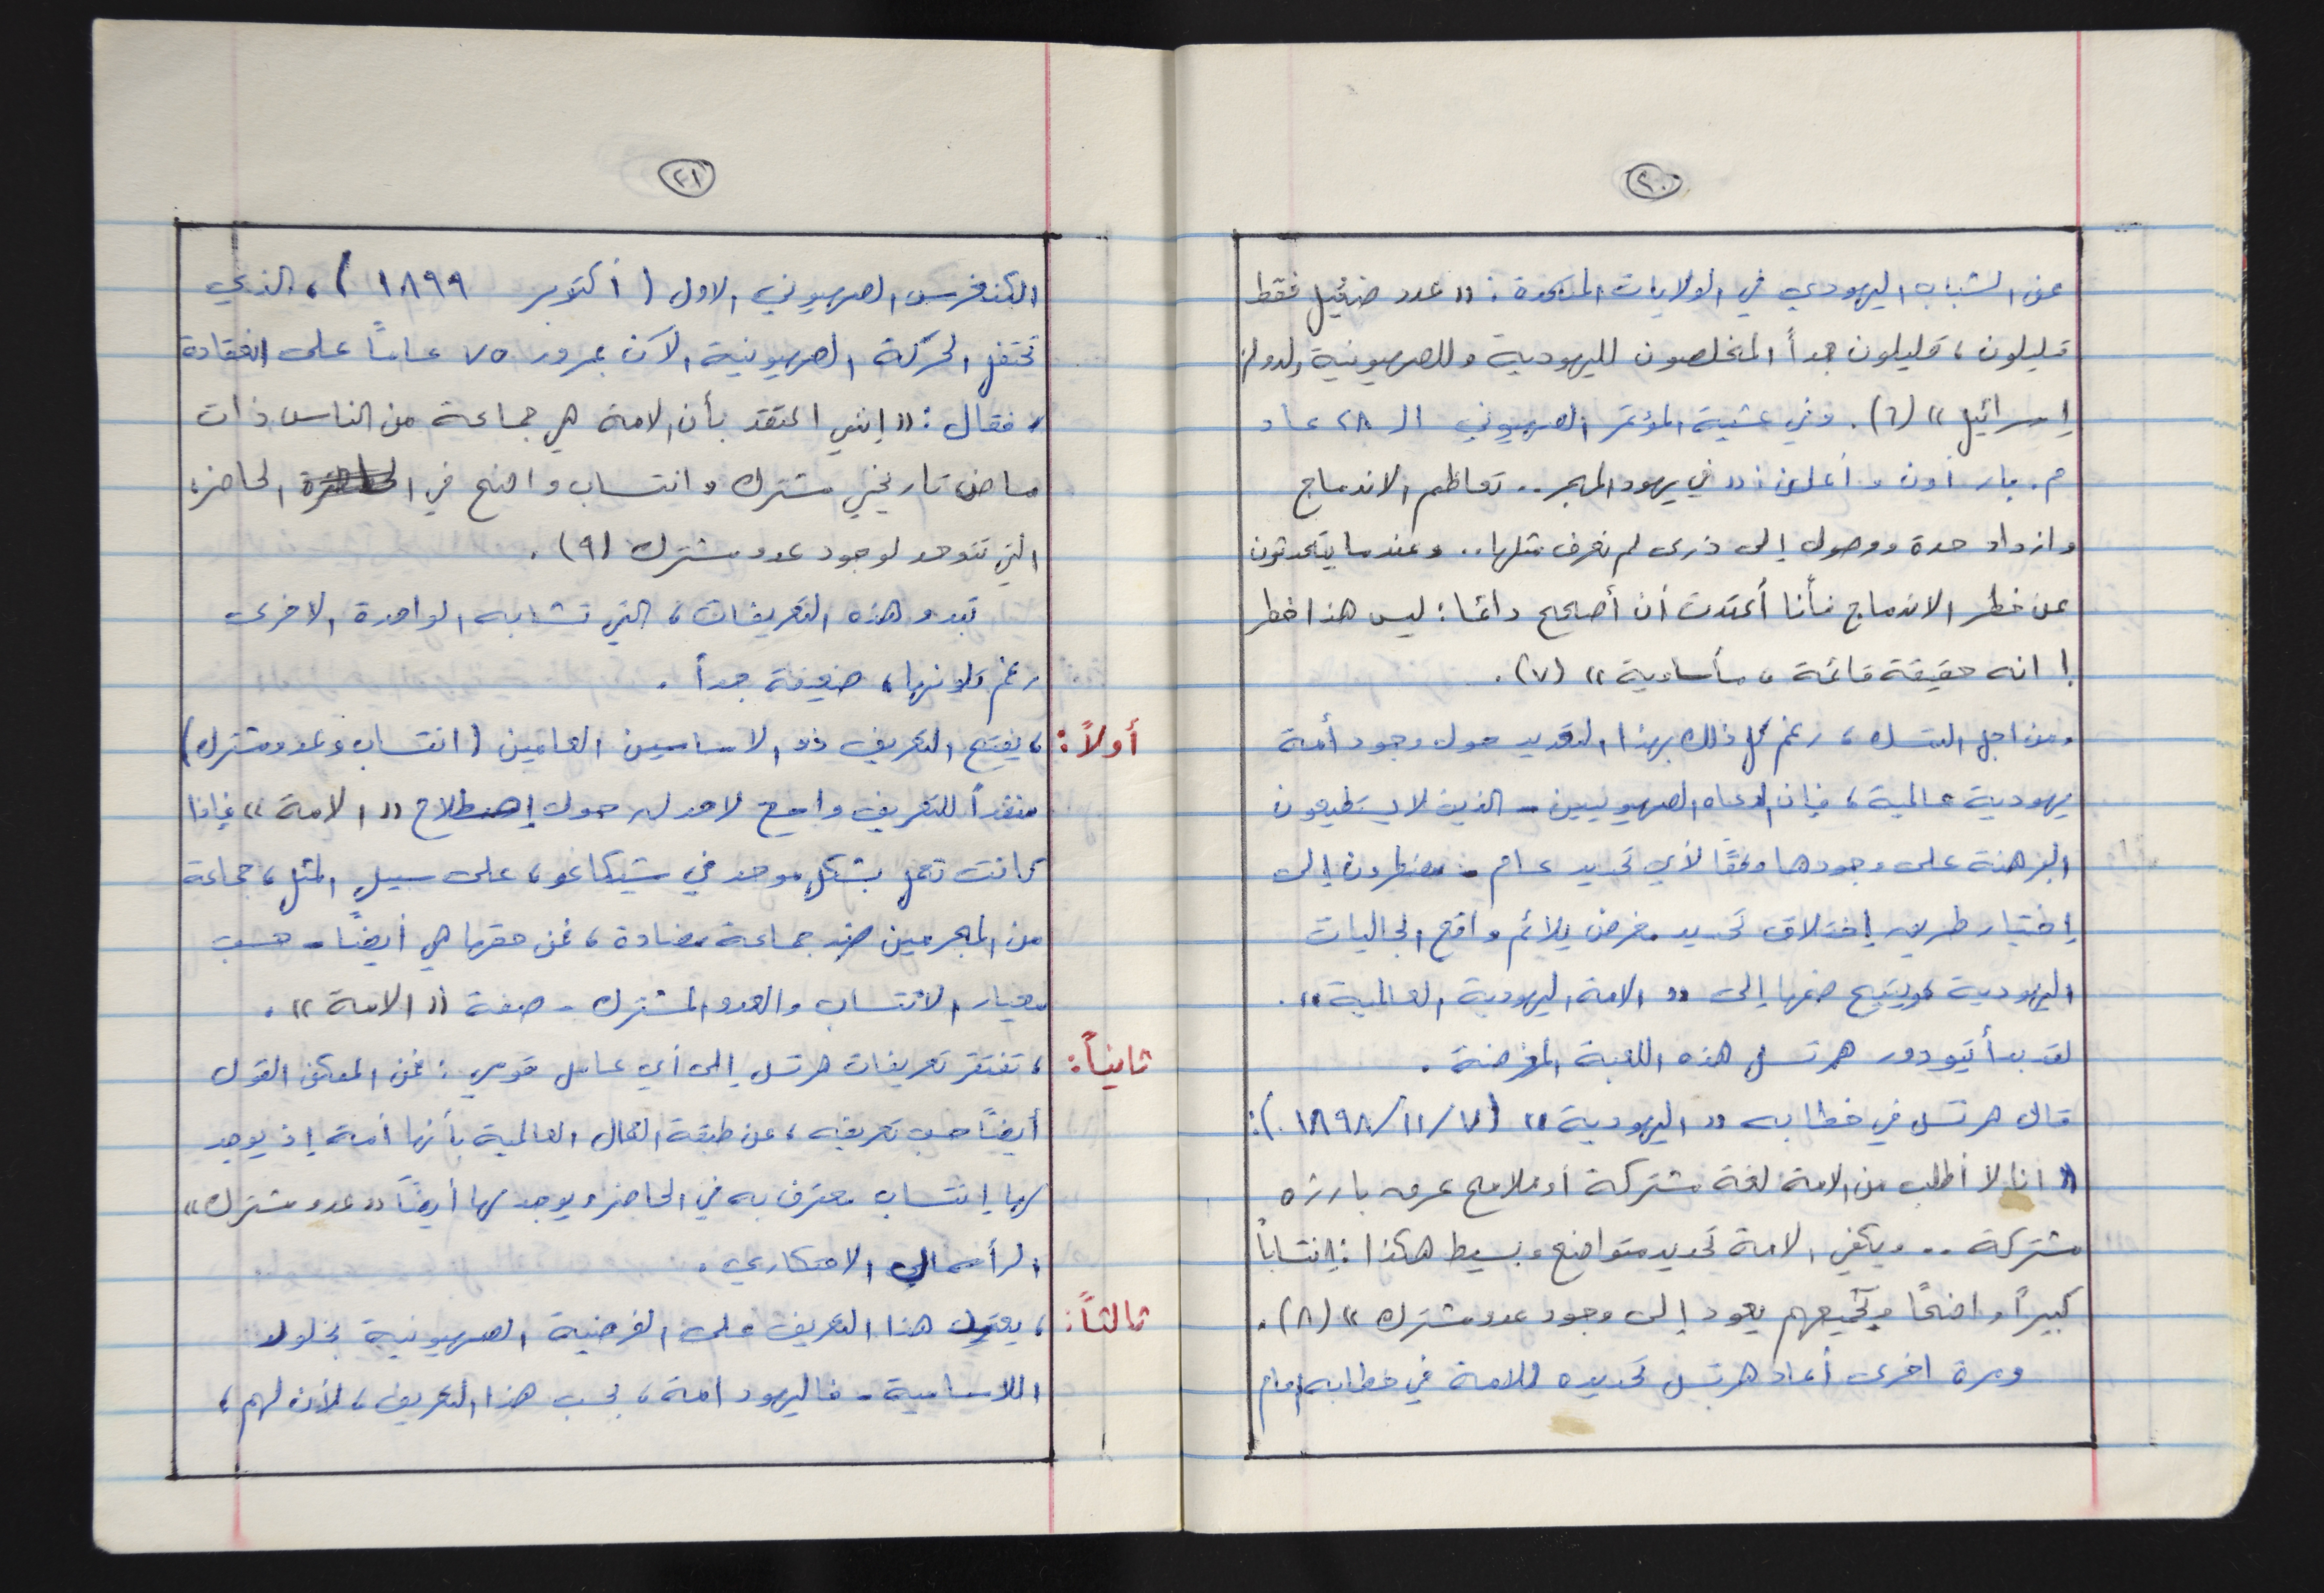 ٢٠
عن الشباب اليهودي في الولايات المتحدة : « عدد ضئيل فقط
قليلون ، قليلون جداً المخلصون لليهودية وللصهيونية ولدولة
إسرائيل » (٦) . وفي عشية المؤتمر الصهيوني الـ ٢٨ عاد
م . بار اون وأعلن : « في يهود المهجر .. تعاظم الاندماج
وازداد حدة ووصول إلى ذرى لم نعرف مثلها .. وعندما يتحدثون
عن خطر الاندماج فأنا أعتدت أن أصحح دائما : ليس هذا خطر
! انه حقيقة قائمة ، مأساوية » (٧) .
ومن اجل التمسك ، رغم كل ذلك بهذا التحديد حول وجود أمة
يهودية عالمية ، فإن الدعاه الصهيونيين - الذين لا يستطيعون
البرهنة على وجودها وفقاً لأي تحديد عام - مضطرون إلى
إختيار طريق إختلاق تحديد مغرض يلائم واقع الجاليات
اليهودية ويتيح ضمها إلى « الامة اليهودية العالمية » .
لقد بدأ تيودور هرتسل هذه اللعبة المغرضة .
قال هرتسل في خطابه « اليهودية » (٧/١١/١٨٩٨) :
« انا لا أطلب من الامة لغة مشتركة أو ملامح عرق بارزه
مشتركة .. ويكفي الامة تحديد متواضع وبسيط هكذا : إنتساباً
كبيراً واضحاً وتجميعهم يعود إلى وجود عدو مشترك » (٨) .
ومرة اخرى أعاد هرتسل تحديده للامة في خطابه امام
٢١
الكنغرس الصهيوني الاول ( أكتوبر ١٨٩٩ ) ، الذي
تحتفل الحركة الصهيونية الآن بمرور ٧٥ عاماً على انعقادة
، فقال : « إنني اعتقد بأن الامة هي جماعة من الناس ذات
ماض تاريخي مشترك وانتساب واضح في الحاضر ،
التي تتوحد لوجود عدو مشترك (٩) .
تبدو هذه التعريفات ، التي تشابه الواحدة الاخرى
رغم ، ضعيفة جداً .
أولاً : ، يفتح التعريف ذو الاساسين العامين ( انتساب وعدو مشترك )
منفذاً للتعريف واسع لا حد له حول إصطلاح « الامة » فإذا
كانت تعمل بشكل موحد في شيكاغو ، على سبيل المثل ، جماعة
من المجرمين ضد جماعة مضادة ، فمن حقها هي أيضاً - حسب
معيار الانتساب والعدو المشترك - صفة « الامة » .
ثانياً : ، تفتقر تعريفات هرتسل إلى أي عامل قومي : فمن الممكن القول
أيضاً حسب تعريفه ، عن طبقة العمال العالمية بأنها أمة إذ يوجد
لها إنتساب معترف به في الحاضر ويوجد لها أيضاً « عدو مشترك »
الرأسمالي الاحتكاري .
ثالثاً : ، يعتمد هذا التعريف على الفرضية الصهيونية بخلود
اللاسامية - فاليهود امة ، بحسب هذا التعريف ، لأن لهم ،